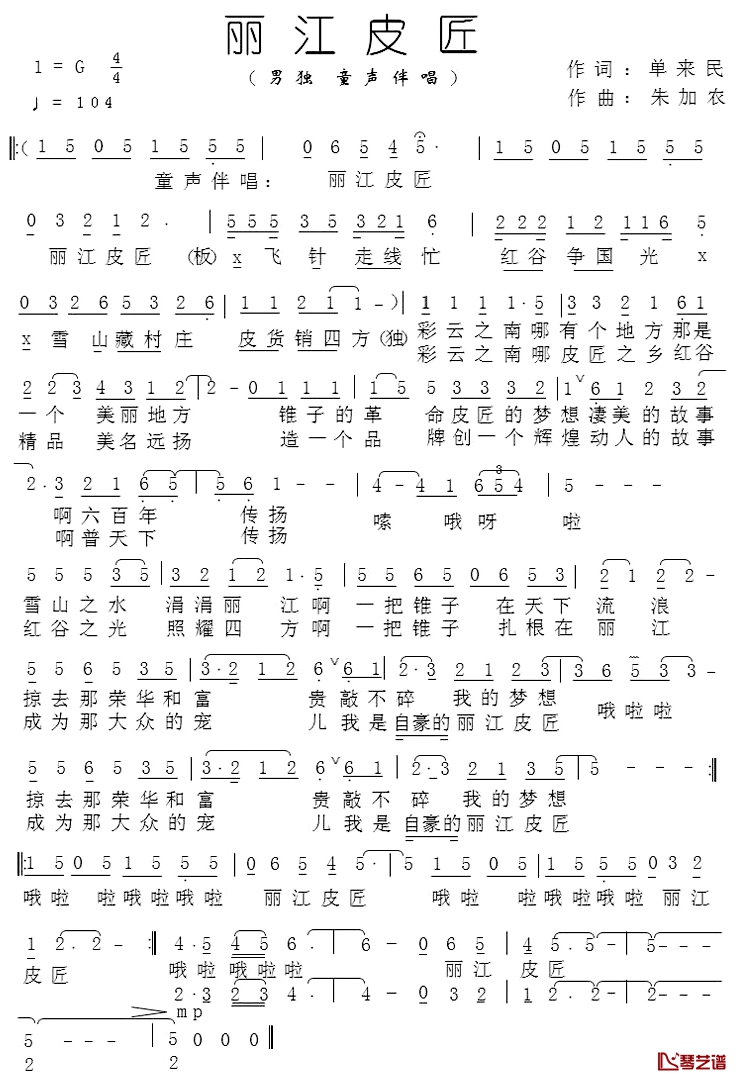 丽江皮匠
1 = G 4/4
(男独 童声伴唱)
作词：单来民
♩= 104
作曲：朱加农
‖:( 1 5 0 5 1 5 5 5 | 0 6 5 4 5· | 1 5 0 5 1 5 5 5
童声伴唱： 丽江皮匠
0 3 2 1 2 . | 5 5 5 3 5 3 2 1 6 | 2 2 2 1 2 1 1 6 5
丽江皮匠 (板) x 飞针走线忙 红谷争国光 x
0 3 2 6 5 3 2 6 | 1 1 2 1 1 - ) | 1 1 1 1·5 | 3 3 2 1 6 1
x 雪山藏村庄 皮货销四方 (独) 彩云之南哪有个地方那是
彩云之南哪皮匠之乡红谷
2 2 3 4 3 1 2 | 2 - 0 1 1 1 | 1 5 5 3 3 3 2 | 1 ∨ 6 1 2 3 2
一个 美丽地方 锥子的革 命皮匠的梦想凄美的故事
精品 美名远扬 造一个品 牌创一个辉煌动人的故事
2 . 3 2 1 6 5 | 5 6 1 - - | 4 - 4 1 6 5 4 | 5 - - -
3
啊六百年 传扬 嗦 哦呀 啦
啊普天下 传扬
5 5 5 3 5 | 3 2 1 2 1 · 5 | 5 5 6 5 0 6 5 3 | 2 1 2 -
雪山之水 涓涓丽 江啊 一把锥子 在天下 流 浪
红谷之光 照耀四 方啊 一把锥子 扎根在 丽 江
5 5 6 5 3 5 | 3 · 2 1 2 6 ∨ 6 1 | 2 · 3 2 1 2 3 | 3 6 5 3 3 -
掠去那荣华和富 贵敲不碎 我的梦想 哦啦啦
成为那大众的宠 儿我是自豪的丽江皮匠
5 5 6 5 3 5 | 3 · 2 1 2 6 ∨ 6 1 | 2 · 3 2 1 3 5 | 5 - - :‖
掠去那荣华和富 贵敲不碎 我的梦想
成为那大众的宠 儿我是自豪的丽江皮匠
‖: 1 5 0 5 1 5 5 5 | 0 6 5 4 5 · | 5 1 5 0 5 | 1 5 5 5 0 3 2
哦啦 啦哦啦哦啦 丽江皮匠 哦啦 啦哦啦哦啦 丽江
1 2 . 2 - :‖ 4 . 5 4 5 6 . | 6 - 0 6 5 | 4 5 . 5 - | 5 - - -
皮匠 哦啦哦啦啦 丽江 皮匠
2 . 3 2 3 4 . 4 - 0 3 2 | 1 2 . 2 - | 2 - - -
mp
5 - - - | 5 0 0 0 ‖
2 2
琴艺谱